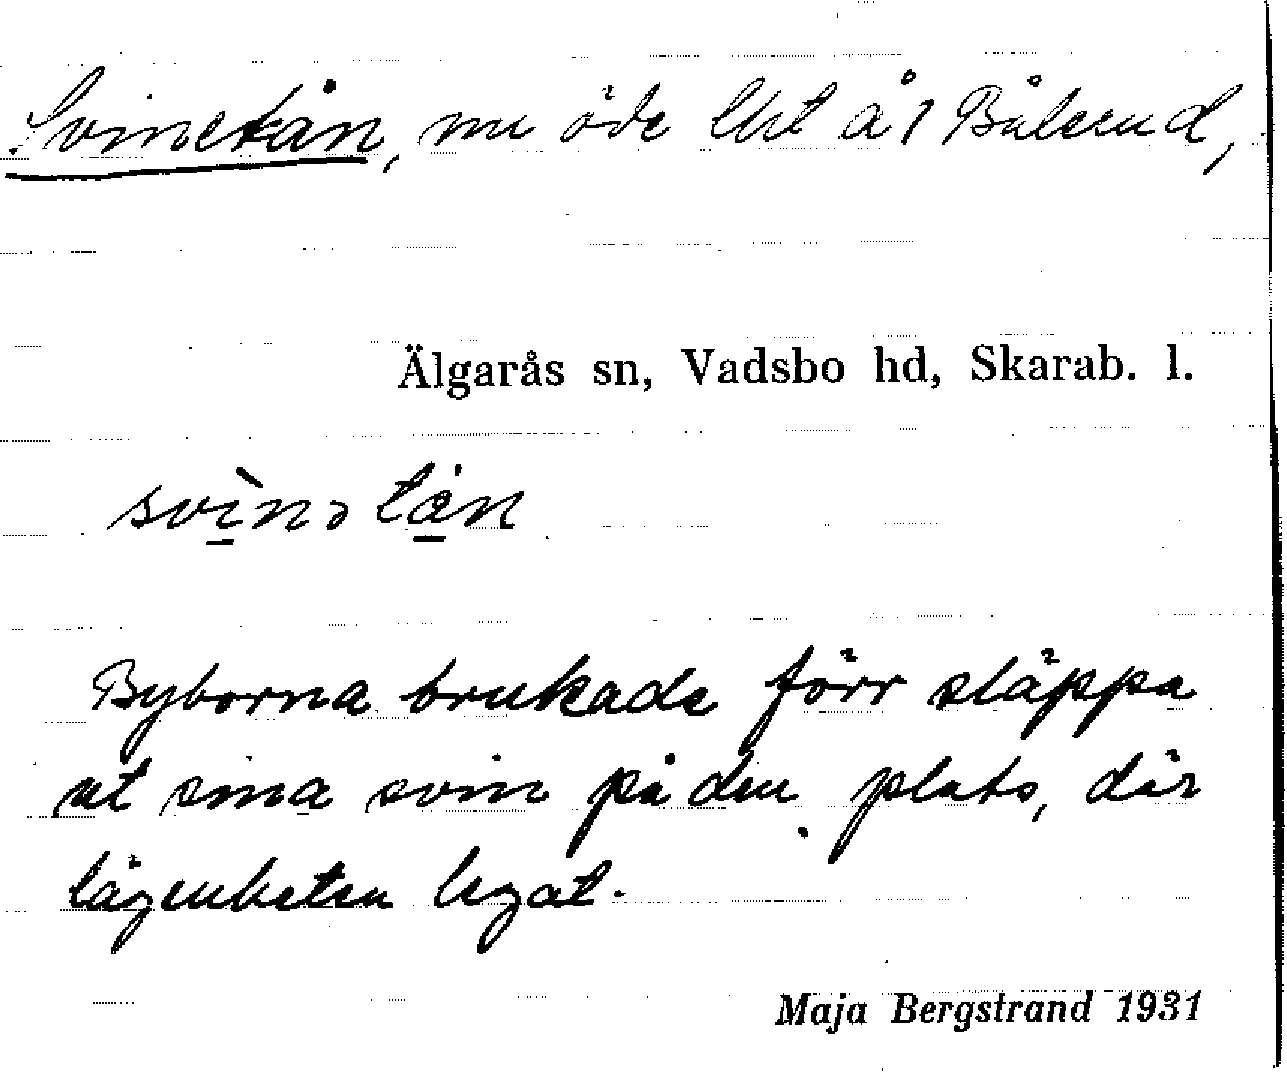 Svinetån, nu öde lht å 1 Bålerud,
Älgarås sn, Vadsbo hd, Skarab. l.
svìnə tån
Byborna brukade förr släppa
ut sina svin på den plats, där
lägenheten legat.
Maja Bergstrand 1931